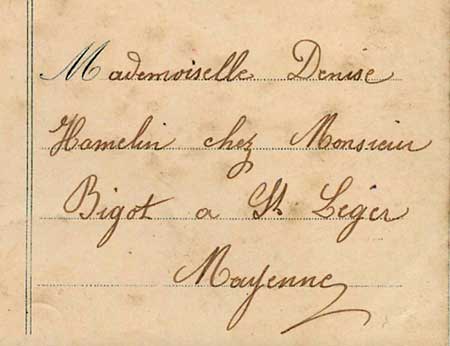 Mademoiselle Denise
Hamelin chez Monsieur
Bigot a St Léger
Mayenne